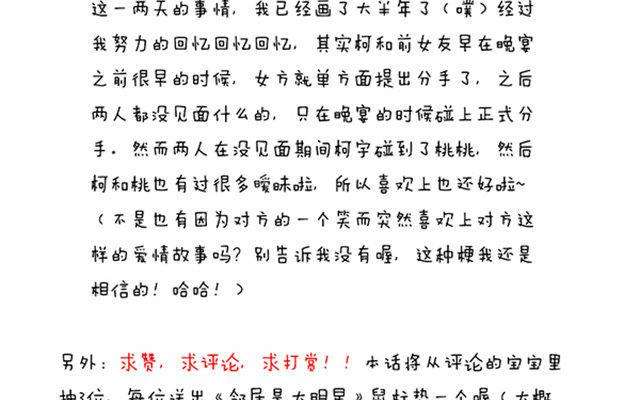 这一两天的事情, 我已经画了大半年了(噗)经过
我努力的回忆回忆回忆, 其实柯和前女友早在晚宴
之前很早的时候, 女方就单方面提出分手了, 之后
两人都没见面什么的, 只在晚宴的时候碰上正式分
手。然而两人在没见面期间柯宇碰到了桃桃, 然后
柯和桃也有过很多暧昧啦, 所以喜欢上也还好啦~
(不是也有因为对方的一个笑而突然喜欢上对方这
样的爱情故事吗? 别告诉我没有喔, 这种梗我还是
相信的! 哈哈! )
另外: 求赞, 求评论, 求打赏! ! 本话将从评论的宝宝里
抽3位, 每位送出《邻居是大明星》鼠标垫一个喔(大概